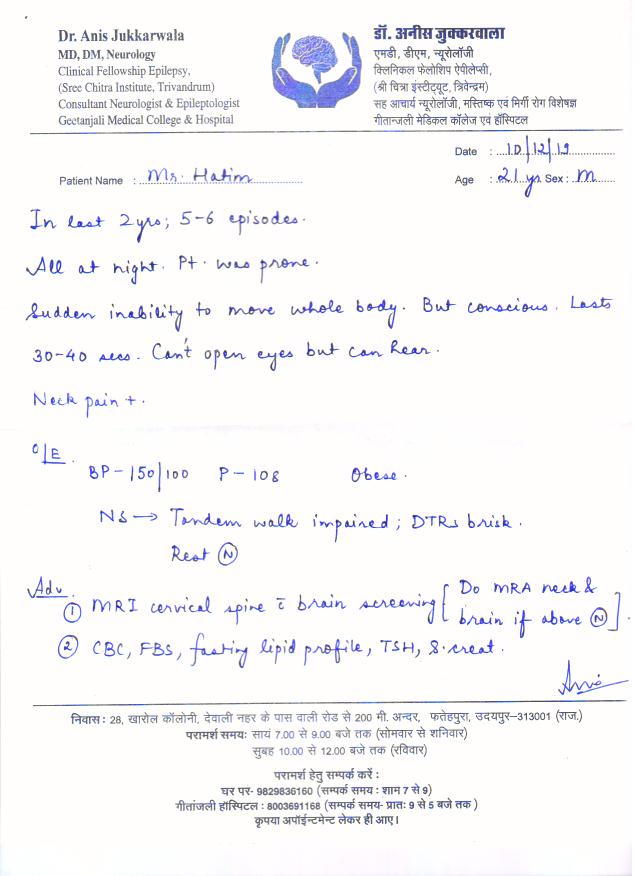 Dr. Anis Jukkarwala
MD, DM, Neurology
Clinical Fellowship Epilepsy,
(Sree Chitra Institute, Trivandrum)
Consultant Neurologist & Epileptologist
Geetanjali Medical College & Hospital
डॉ. अनीस जुक्करवाला
एमडी, डीएम, न्यूरोलॉजी
क्लिनिकल फेलोशिप ऐपीलेप्सी,
(श्री चित्रा इंस्टीट्यूट, त्रिवेन्द्रम)
सह आचार्य न्यूरोलॉजी, मस्तिष्क एवं मिर्गी रोग विशेषज्ञ
गीतान्जली मेडिकल कॉलेज एवं हॉस्पिटल
Date : 10/12/19
Patient Name : Mr. Hatim
Age : 21 yr Sex : M
In last 2yrs; 5-6 episodes.
All at night. Pt. was prone.
Sudden inability to move whole body. But conscious. Lasts
30-40 secs. Can't open eyes but can hear.
Neck pain +.
O/E
BP-150/100 P-108 Obese.
NS → Tandem walk impaired; DTRs brisk.
Rest Ⓝ
Adv.
① MRI cervical spine c̄ brain screening [Do MRA neck &
brain if above Ⓝ].
② CBC, FBS, fasting lipid profile, TSH, S.creat.
Anis
निवास : 28, खारोल कॉलोनी, देवाली नहर के पास वाली रोड से 200 मी. अन्दर, फतेहपुरा, उदयपुर–313001 (राज.)
परामर्श समय: सायं 7.00 से 9.00 बजे तक (सोमवार से शनिवार)
सुबह 10.00 से 12.00 बजे तक (रविवार)
परामर्श हेतु सम्पर्क करें :
घर पर- 9829836160 (सम्पर्क समय : शाम 7 से 9)
गीतांजली हॉस्पिटल : 8003691168 (सम्पर्क समय- प्रातः 9 से 5 बजे तक )
कृपया अपॉईन्टमेन्ट लेकर ही आए।